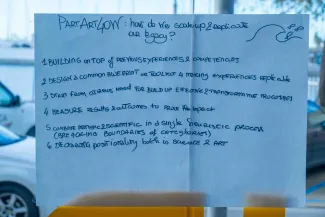 PARTART4OW: how do we scaleup & replicate
our legacy?
1 BUILDING ON TOP OF PREVIOUS EXPERIENCES & COMPETENCIES
2 DESIGN A COMMON BLUEPRINT OR TOOLKIT 4 MAKING EXPERIENCES REPLICABLE
3 START FROM A GENUINE NEED FOR BUILD UP EFFECTIVE & TRANSFORMATIVE
4 MEASURE RESULTS & OUTCOMES TO the IMPACT
5 COMBINE ARTISTIC & SCIENTIFIC in a single HEURISTIC PROCESS
(BREAKING BOUNDARIES of CATEGORIES)
6 DECLARING POSITIONALITY both in SCIENCE & ART